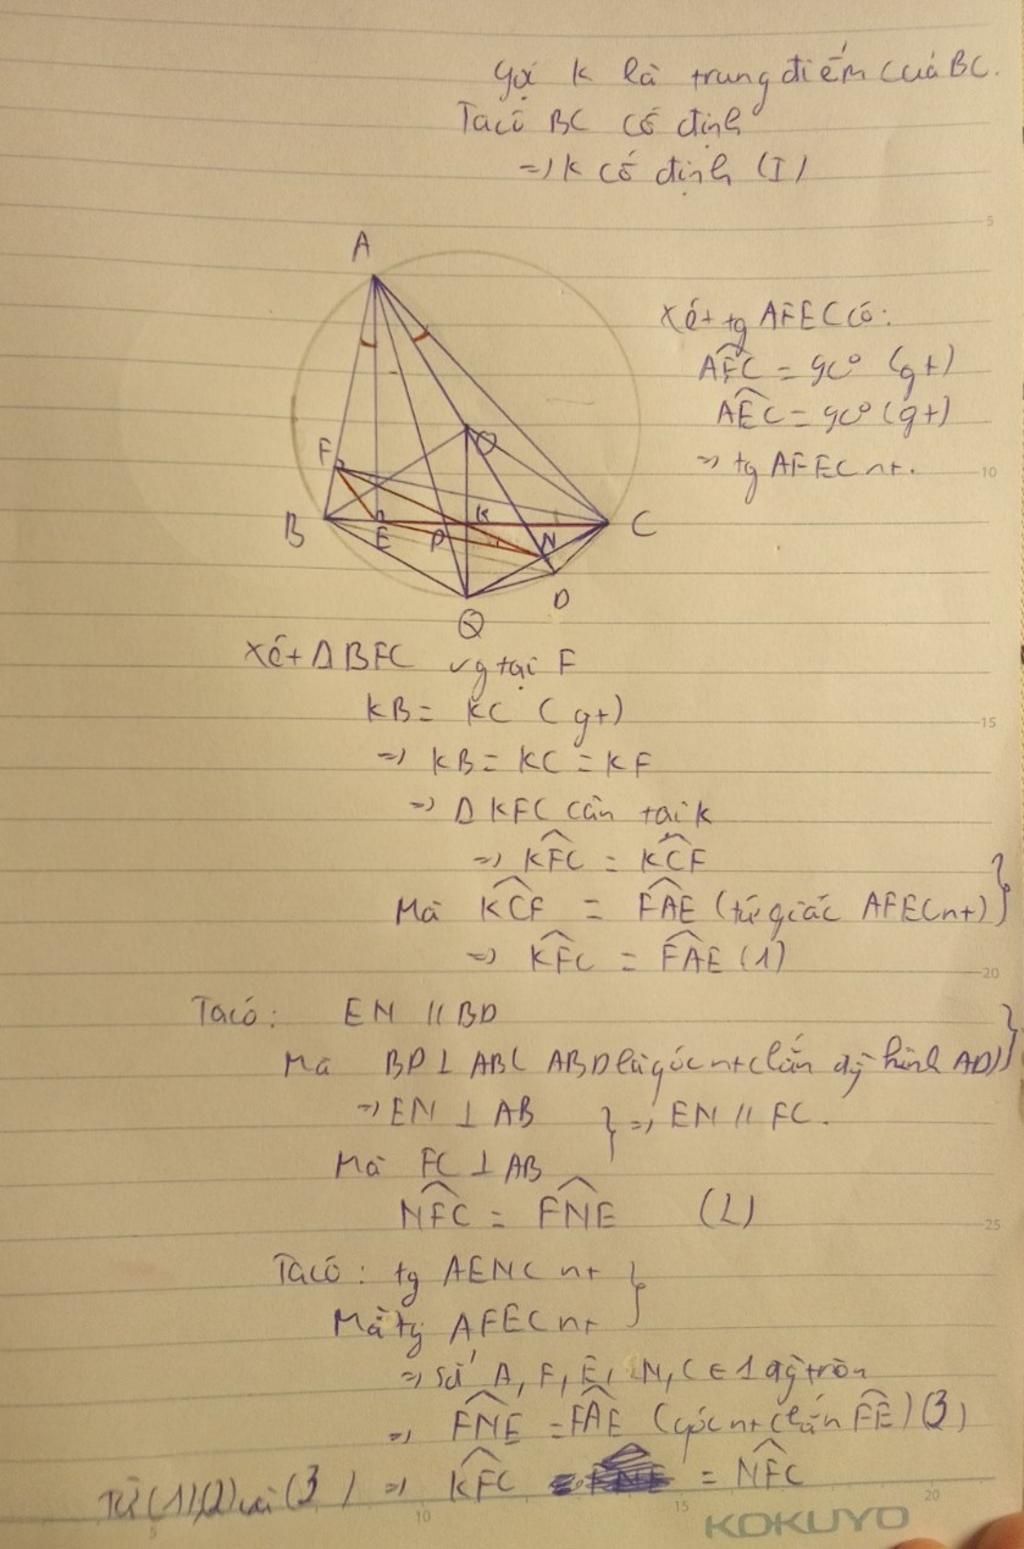 Gọi K là trung điểm của BC.
Ta có BC cố định
=> K cố định (I)
A
Xét tg AFEC có:
AFC = 90° (gt)
AEC = 90° (gt)
=> tg AFEC nt.
F
O
B
E
P
K
N
C
D
Q
Xét Δ BFC vg tại F
KB = KC (gt)
=> KB = KC = KF
=> Δ KFC cân tại K
=> KFC = KCF
Mà KCF = FAE (tứ giác AFEC nt)
=> KFC = FAE (1)
Ta có: EN // BD
Mà BD ⊥ AB ( ABD là góc nt chắn đg kính AD)
=> EN ⊥ AB } => EN // FC.
Mà FC ⊥ AB
NFC = FNE (2)
Ta có: tg AENC nt
Mà tg AFEC nt
=> A, F, E, N, C ∈ 1 đg tròn
=> FNE = FAE (góc nt chắn FE) (3)
Từ (1)(2) và (3) => KFC = NFC
5
10
15
20
25
5
10
15
20
KOKUYO